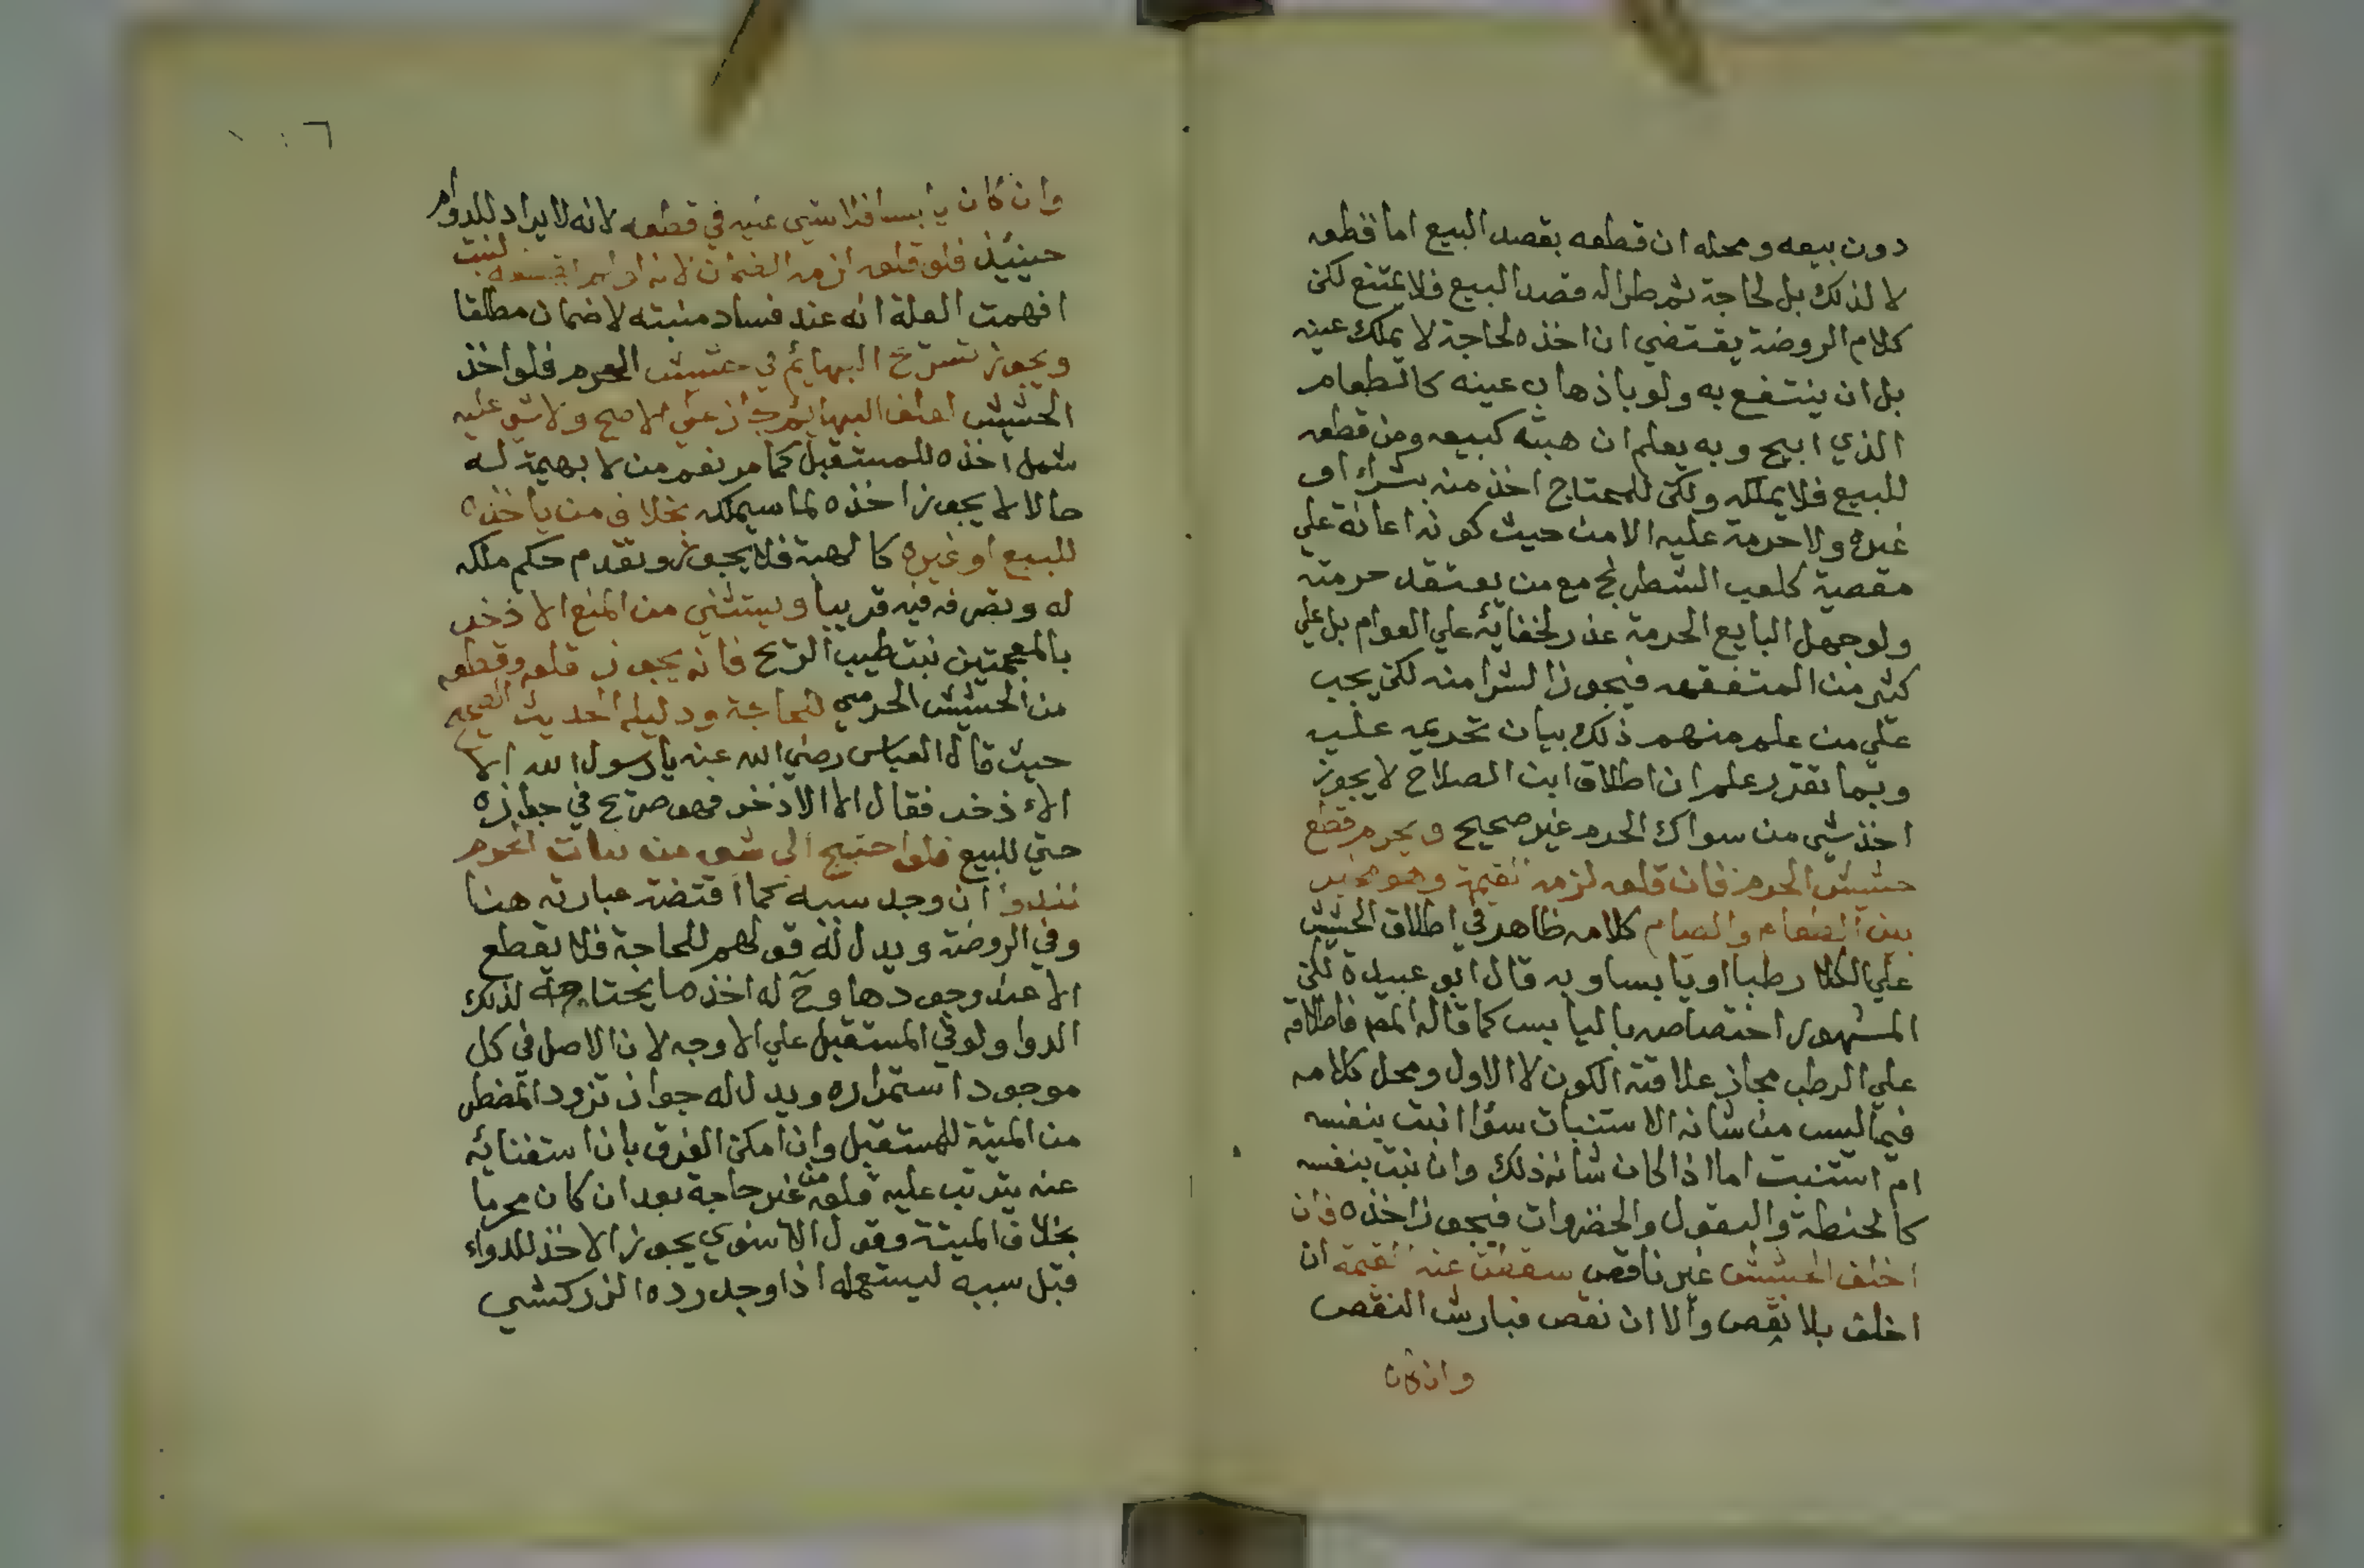 دون بيعه ومحله ان قطعه بقصد البيع اما قطعه
لا لذلك بل لحاجة ثم طراله قصد البيع فلا يمتنع لكن
كلام الروضة يقتضي ان اخذه لحاجة لا يملك عينه
بل ان ينتفع به ولو باذهاب عينه كالطعام
الذي ابيح وبه يعلم ان هبته كبيعه ومن قطعه
للبيع فلا يملكه ولكن للمحتاج اخذ منه بشراء او
غيره ولا حرمة عليه الا من حيث كونه اعانة علي
معصية كلعب الشطرنج مع من يعتقد حرمته
ولو جهل البايع الحرمة عذر لخفائه علي العوام بل علي
كثير من المتفقهه فيجوز الشرا منه لكن يجب
علي من علم منهم ذلك بيان تحريمه عليه
وبما تقرر علم ان اطلاق ابن الصلاح لا يجوز
اخذ شي من سواك الحرم غير صحيح ويحرم قطع
حشيش الحرم فان قلعه لزمه القيمة وهو مخير
بين الطعام والصيام كلامه ظاهر في اطلاق الحشيش
علي الكلا رطبا او يابسا وبه قال ابو عبيدة لكن
المشهور اختصاصه باليابس كما قاله المص فاطلاقه
علي الرطب مجاز علاقته الكون لا الاول ومحل كلامه
فيما ليس من شانه الاستنبات سؤا انبت بنفسه
ام استنبت اما اذا كان شانه ذلك وان نبت بنفسه
كالحنطة والبقول والخضروات فيجوز اخذه فان
اخلف الحشيش غير ناقص سقطت عنه القيمة ان
اخلف بلا نقص والا ان نقص فبارش النقص
وان كان
١٠٦
وان كان يابسا فلا شي عليه في قطعه لانه لا يراد للدوام
حينيذ فلو قلعه لزمه الضمان لانه لو لم يقلعه لنبت
افهمت العلة انه عند فساد منبته لا ضمان مطلقا
ويجوز تسريح البهايم في حشيش الحرم فلو اخذ
الحشيش لعلف البهايم جاز علي الاصح ولا شي عليه
شمل اخذه للمستقبل كما مر نعم من لا بهيمة له
حالا لا يجوز اخذه لما سيملكه بخلاف من ياخذه
للبيع او غيره كالهبة فلا يجوز وتقدم حكم ملكه
له وتصرفه فيه قريبا ويستثني من المنع الا ذخر
بالمعجمتين نبت طيب الريح فانه يجوز قلعه وقطعه
من الحشيش الحرمي للحاجة ودليله الحديث الصحيح
حيث قال العباس رضي الله عنه يا رسول الله الا
الاذخر فقال الا الاذخر فهو صريح في جوازه
حتي للبيع فلو احتيج الي شي من نبات الحرم
للدوا ان وجد سببه كما اقتضته عبارته هنا
وفي الروضة ويدل له قولهم للحاجة فلا يقطع
الا عند وجودها وح له اخذ ما يحتاجه لذلك
الدوا ولو في المستقبل علي الاوجه لان الاصل في كل
موجود استمراره ويدل له جواز تزود المضطر
من الميتة للمستقبل وان امكن الفرق بان استغنائه
عنه يترتب عليه قلعه من غير حاجة بعد ان كان محرما
بخلاف الميتة وقول الاسنوي يجوز الاخذ للدواء
قبل سببه ليستعمله اذا وجد رده الزركشي